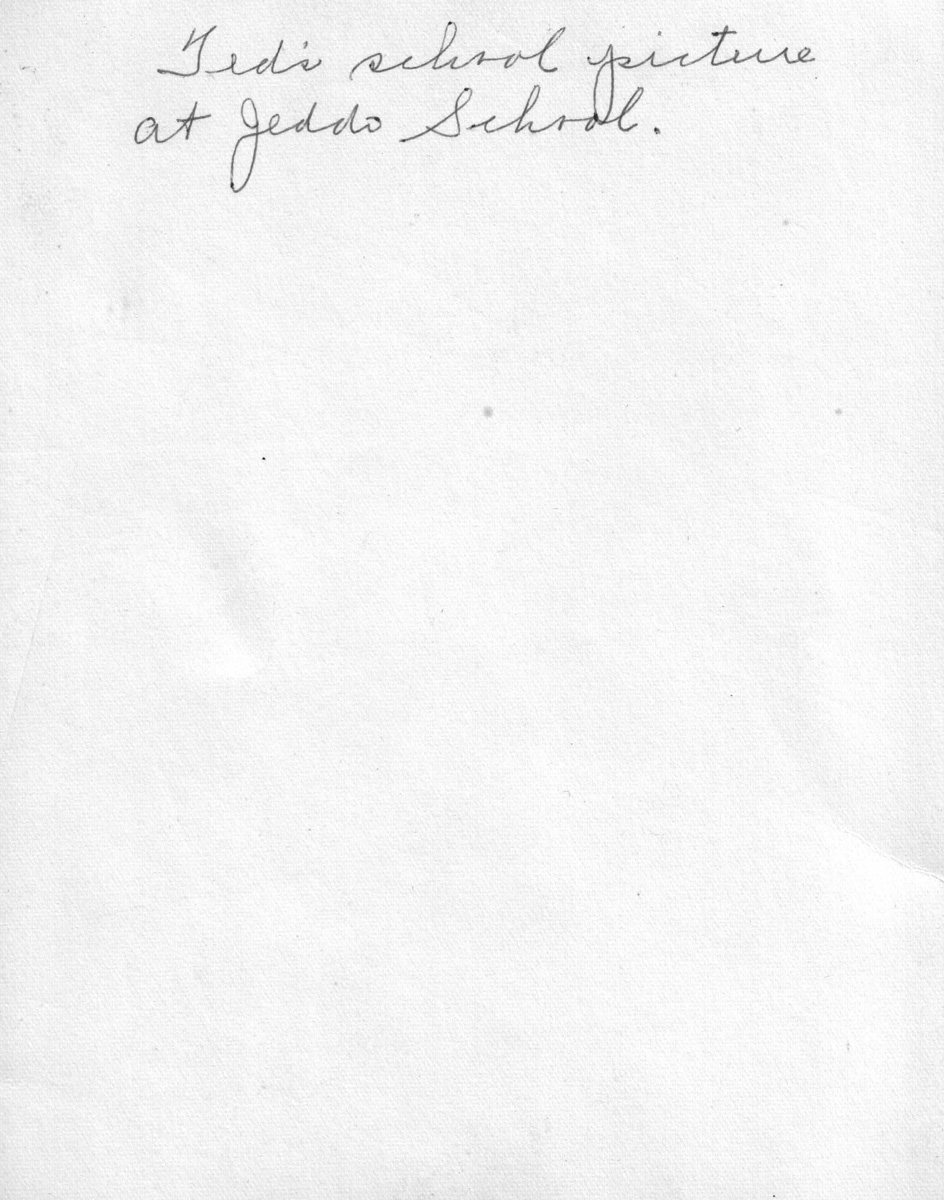 Ted's school picture
at Jeddo School.